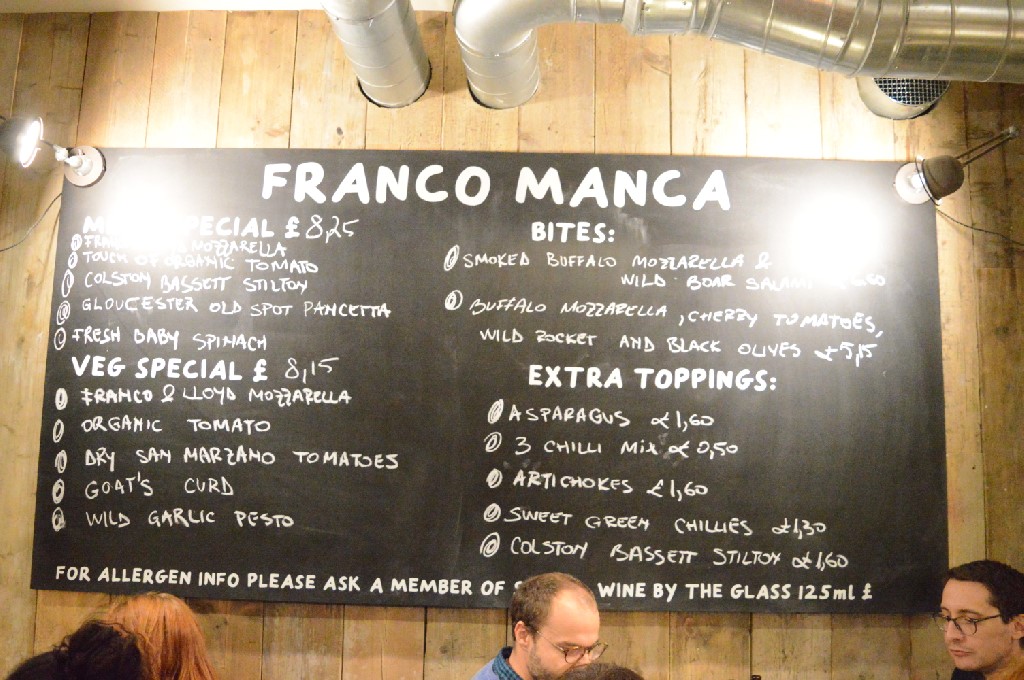 FRANCO MANCA
SPECIAL £ 8,25
MOZZARELLA
TOUCH OF ORGANIC TOMATO
COLSTON BASSETT STILTON
GLOUCESTER OLD SPOT PANCETTA
FRESH BABY SPINACH
VEG SPECIAL £ 8,15
FRANCO & LLOYD MOZZARELLA
ORGANIC TOMATO
DRY SAN MARZANO TOMATOES
GOAT'S CURD
WILD GARLIC PESTO
BITES:
SMOKED BUFFALO MOZZARELLA &
WILD BOAR SALAMI
BUFFALO MOZZARELLA, CHERRY TOMATOES,
WILD ROCKET AND BLACK OLIVES £5,15
EXTRA TOPPINGS:
ASPARAGUS £1,60
3 CHILLI MIX £0,50
ARTICHOKES £1,60
SWEET GREEN CHILLIES £1,30
COLSTON BASSETT STILTON £1,60
FOR ALLERGEN INFO PLEASE ASK A MEMBER OF WINE BY THE GLASS 125ml £